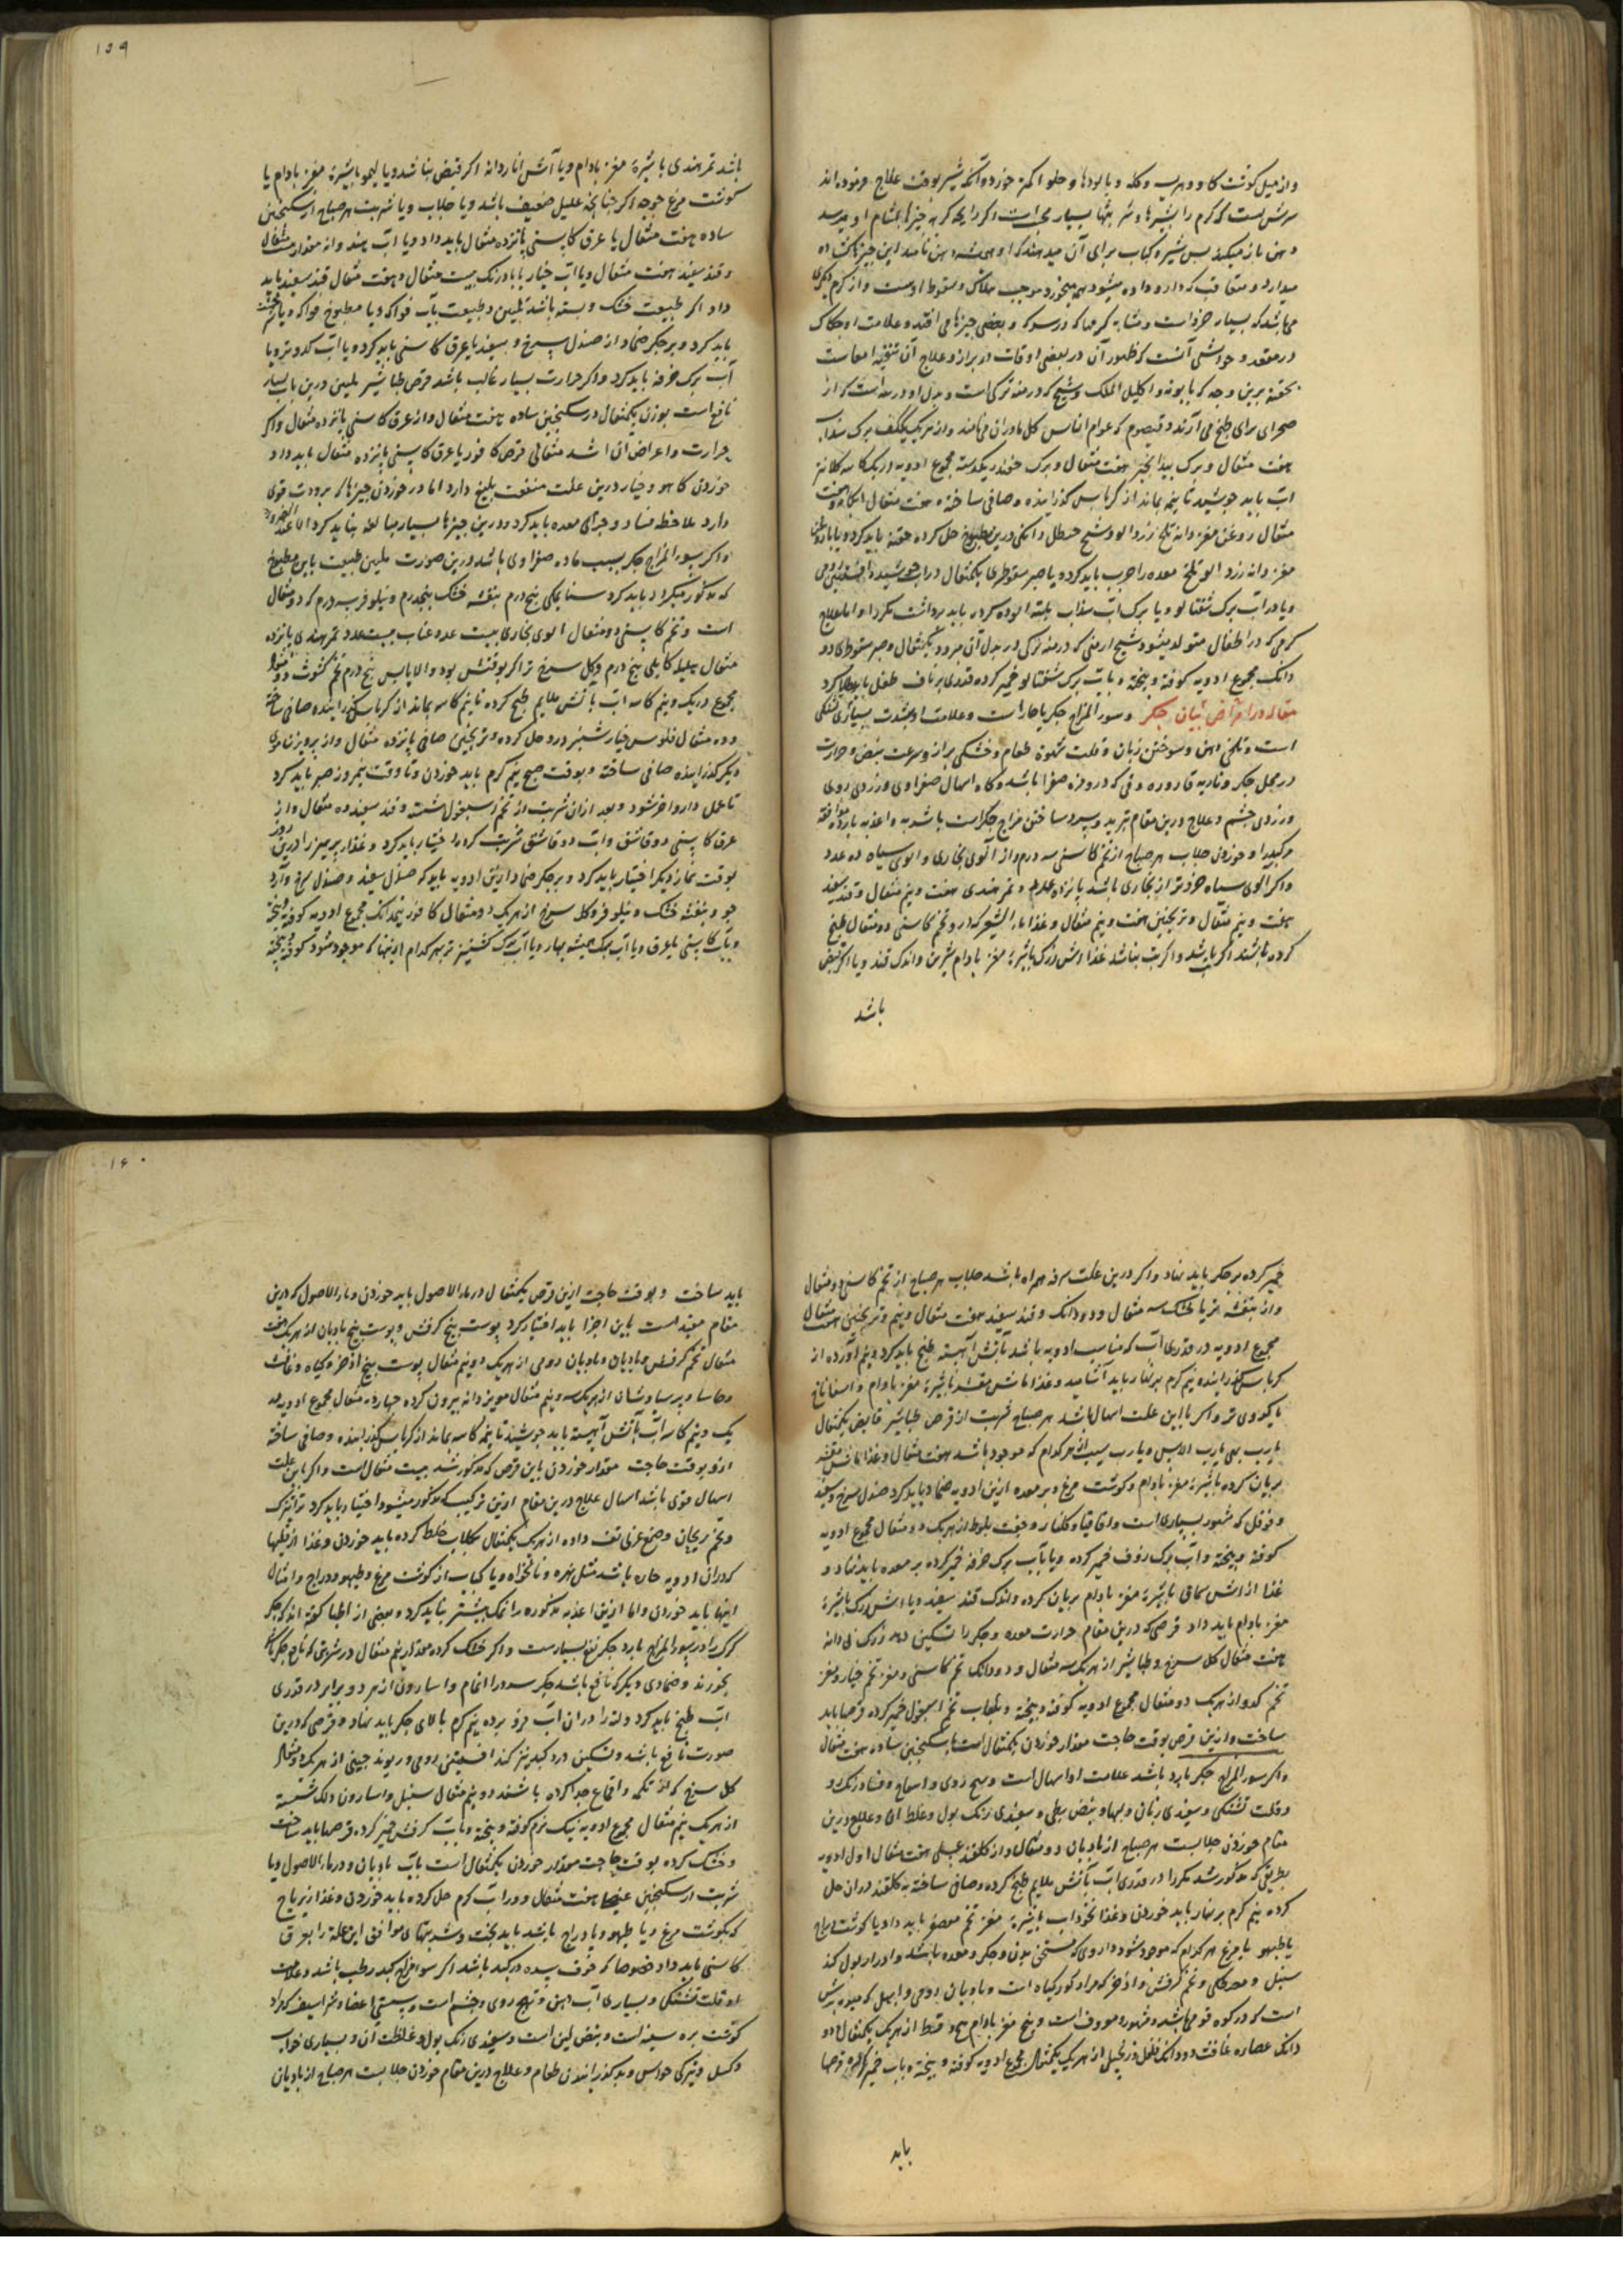 ۱۵۹
و از میل گوشت گاو و هریسه و کله و پالودها و حلوا کمتر خورد و آنکه شیر بوقت علاج فرموده اند
درمقعد و حواشی آنست که ظهور آن در بعضی اوقات در براز و علاج آن تنقیه امعاست
بحقنه برین وجه که بابونه و اکلیل الملک و شیح که درمنه ترکی است و بدل او درمنه است که از
صحرای برای طبخ می آرند و قیصوم که عوام الناس گل مادران می نامند و از هریک یک کف برگ سداب
هفت مثقال و برگ بیدانجیر هفت مثقال و برگ یکدسته مجموع ادویه در یک کاسه کلانتر
آب باید جوشید تا نیمه بماند از کرباس گذرانیده و صافی ساخته هفت مثقال
مثقال روغن مغز دانه تلخ زردالو و شحم حنظل دانکی درین مطبوخ حل کرده حقنه باید کرد و یا
مغز دانه زردالو تلخ معده را چرب باید کرد و یا صبر سقوطری یکمثقال در آب جوشیده
و یا در آب برگ شفتالو و یا برگ آب سداب بلته آلوده کرده باید برداشت مکرر اما علاج
کرمی که در اطفال متولد میشود شیح ارمنی که درمنه ترکی در بدل آن میرود یکمثقال و صبر سقوطری دو
دانک مجموع ادویه کوفته و بیخته و بآب برگ شفتالو خمیر کرده قدری بر ناف طفل باید طلا کرد
مقاله در امراض بیان جگر و سوء المزاج جگر یا حار است و علامت او بشدت بسیاری تشنگی
است و تلخی دهن و سوختن زبان و قلت شهوة طعام و خشکی براز و سرعت نبض و حرارت
در محل جگر و ناریه قاروره و قی که در و مره صفرا باشد و گاه اسهال صفراوی و زردی روی
و زردی چشم و علاج درین مقام تبرید و سرد ساختن مزاج جگر است باشربه و اغذیه بارده موافقه
مرکبد را و خوردن جلاب هر صباح از تخم کاسنی سه درم و از آلوی بخاری و آلوی سیاه ده عدد
و اگر آلوی سیاه خردتر از بخاری باشد پانزده عدد و تمر هندی هفت و نیم مثقال و قند سفید
هفت و نیم مثقال و ترنجبین هفت و نیم مثقال و غذا ماء الشعیر که درو تخم کاسنی دو مثقال طبخ
کرده باشند اگر تب باشد و اگر تب نباشد غذا آش زرک باشیره مغز بادام شیرین و اندک قند و یا اگر قبض
باشد
باشد تمر هندی با شیره مغز بادام و یا آش اناردانه اگر قبض نباشد و یا لیمو با شیره مغز بادام یا
گوشت مرغ جوجه اگر چنانچه علیل ضعیف باشد و یا جلاب و یا شربت هر صباح از سکنجبین
ساده هفت مثقال یا عرق کاسنی پانزده مثقال باید داد و یا آب هندوانه مقدار
و قند سفید هفت مثقال و یا آب خیار یا بادرنک بیست مثقال و هفت مثقال قند سفید باید
داد اگر طبیعت خشک و بسته باشد تلیین و طبیعت بآب فواکه و یا مطبوخ فواکه و یا
باید کرد و بر جگر ضماد از صندل سرخ و سفید با عرق کاسنی باید کرد و یا آب کدوتر و یا
آب برگ خرفه باید کرد و اگر حرارت بسیار غالب باشد قرص طباشیر ملین درین باب بسیار
نافع است بوزن یکمثقال در سکنجبین ساده هفت مثقال و از عرق کاسنی پانزده مثقال و اگر
حرارت و اعراض آن اشد مثقالی قرص کافور با عرق کاسنی پانزده مثقال باید داد و
خوردن کاهو و خیار درین علت منفعت بلیغ دارد اما در خوردن چیزها که برودت قوی
دارد ملاحظه فساد و جرای معده باید کرد و درین چیزها بسیار مبالغه نباید کرد الا عند الضروره
و اگر سوء المزاج جگر بسبب ماده صفراوی باشد درین صورت تلیین طبیعت باین مطبوخ
که مذکور میگردد باید کرد سنای مکی پنج درم بنفشه خشک پنجدرم و نیلوفر سه درم که دو مثقال
است و تخم کاسنی دو مثقال آلوی بخاری بیست عدد عناب بیست عدد تمر هندی پانزده
مثقال هلیله کابلی پنج درم و گل سرخ تر اگر بوقتش بود و الا یابس پنج درم تخم کشوث دو
مجموع در یک و نیم کاسه آب بآتش ملایم طبخ کرده تا نیم کاسه بماند از کرباس گذرانیده صافی ساخته
و ده مثقال فلوس خیار شنبر درو حل کرده و ترنجبین صافی پانزده مثقال و از پرویزن موی
دیگر گذرانیده صافی ساخته و بوقت صبح نیم گرم باید خوردن و تا وقت نیمروز صبر باید کرد
تا عمل دارو آخر شود و بعد از آن شربت از تخم اسبغول شسته و قند سفید ده مثقال و از
عرق کاسنی دو قاشق و آب دو قاشق شربت کرده اختیار باید کرد و غذا پرهیز را درین روز
بوقت نماز دیگر اختیار باید کرد و بر جگر ضماد ازین ادویه باید که صندل سفید و صندل سرخ و آرد
جو و بنفشه خشک و نیلوفر و گل سرخ از هریک دو مثقال کافور نیمدانک مجموع ادویه کوفته و بیخته
و بآب کاسنی یا عرق و یا آب برگ همیشه بهار و یا آب برگ کشنیز تر بهر کدام از اینها که موجود شود کوفته و بیخته
۱۶۰
خمیر کرده بر جگر باید نهاد و اگر درین علت سرفه همراه باشد جلاب هر صباح از تخم کاسنی دو مثقال
و از بنفشه خشک سه مثقال و دو دانک و قند سفید هفت مثقال و نیم و ترنجبین هفت مثقال
مجموع ادویه در قدری آب که مناسب ادویه باشد بآتش آهسته طبخ باید کرد و نیم آورده از
کرباس گذرانیده نیم گرم بر نهار باید آشامید و غذا ماش مقشر با شیره مغز بادام و اسفاناخ
یا کدوی تر و اگر با این علت اسهال باشد هر صباح شربت از قرص طباشیر قابض یکمثقال
یا رب بهی یا رب الاس و یا رب سیب از هر کدام که موجود باشد هفت مثقال و غذا ماش مقشر
بریان کرده باشیره مغز بادام و گوشت مرغ و بر معده ازین ادویه ضماد باید کرد صندل سرخ و سفید
و فوفل که مشهور بسپاری است و اقاقیا و گلنار و جفت بلوط از هریک دو مثقال مجموع ادویه
کوفته و بیخته و آب برگ خمیر کرده و یا بآب برگ خرفه خمیر کرده بر معده باید نهاد و
غذا از آش سماق باشیره مغز بادام بریان کرده و اندک قند سفید و یا آش زرک باشیره
مغز بادام باید داد قرصی که درین مقام حرارت معده و جگر را تسکین دهد زرک بی دانه
هفت مثقال گل سرخ و طباشیر از هریک سه مثقال و دو دانک تخم کاسنی و مغز تخم خیار و مغز
تخم کدو از هریک دو مثقال مجموع ادویه کوفته و بیخته و بلعاب تخم اسبغول خمیر کرده قرصها باید
ساخت و ازین قرص بوقت حاجت مقدار خوردن یکمثقال است با سکنجبین ساده هفت مثقال
و اگر سوء المزاج جگر بارد باشد علامت او اسهال است و تهیج روی و و فساد رنگ رو
و قلت تشنگی و سفیدی زبان و لبها و نبض بطی و سفیدی رنگ بول و غلظ آن و علاج درین
مقام خوردن جلابست هر صباح از بادیان دو مثقال و از گلقند عسلی هفت مثقال اول ادویه
بطریقی که مذکور شد مکرر در قدری آب بآتش ملایم طبخ کرده و صافی ساخته به گلقند در آن حل
کرده نیم گرم بر نهار باید خوردن و غذا نخوداب باشیره مغز تخم معصفر باید داد یا گوشت دراج
یا طیهو یا مرغ هر کدام که موجود شود داروی که مسخن بدن و جگر و معده باشد و ادرار بول کند
سنبل و مصطکی و تخم کرفس و اذخر که مراد گورگیاه است و بادیان رومی و ابهل که میوه برش
است که در کوه میباشد و مشهور و معروف است و پنج مغز بادام قسط از هریک یکمثقال و دو
دانک عصاره غافث دو دانک فلفل و زنجبیل از هریک یکمثقال مجموع ادویه کوفته و بیخته و بآب خمیر کرده قرصها
باید
باید ساخت و بوقت حاجت ازین قرص یکمثقال در ماء الاصول باید خوردن و ماء الاصول که درین
مقام مفید است باین اجزا باید اختیار کرد پوست بیخ کرفس و پوست بیخ بادیان از هریک هفت
مثقال تخم کرفس و بادیان و بادیان رومی از هریک دو نیم مثقال پوست بیخ اذخر و گیاه و غافث
و حاشا و پرسیاوشان از هریک سه و نیم مثقال مویز دانه بیرون کرده چهارده مثقال مجموع ادویه در
یک و نیم کاسه آب بآتش آهسته باید جوشید تا نیم کاسه بماند از کرباس گذرانیده و صافی ساخته
ازو بوقت حاجت مقدار خوردن باین قرص که مذکور شد بیست مثقال است و اگر باین علت
اسهال قوی باشد اسهال علاج درین مقام ازین ترکیب که مذکور میشود اختیار باید کرد تراتیزک
و تخم ریحان و صمغ عربی تف داده از هریک یکمثقال بگلاب خلط کرده باید خوردن و غذا از قلیها
که در آن ادویه حاره باشد مثل زیره و نانخواه و یا کباب از گوشت مرغ و طیهو و دراج و امثال
اینها باید خوردن و اما ازین اغذیه مذکوره را نمک بیشتر نباید کرد و بعضی از اطبا گفته اند که جگر
گرگ را در سوء المزاج بارد جگر نفع بسیارست و اگر خشک کرده مقدار نیم مثقال در شربتی که نافع جگر باشد
بخورند و ضمادی دیگر که نافع باشد جگر سرد را و اسارون از هر دو برابر در قدری
آب طبخ باید کرد و لته را در آن آب فرو برده نیم گرم بالای جگر باید نهاد و قرصی که درین
صورت نافع باشد و تسکین درد کبد نیز کند افسنتین رومی و ریوند چینی از هریک دو مثقال
گل سرخ که از تکمه و اقماع جدا کرده باشند دو نیم مثقال سنبل و اسارون و لک شسته
از هریک نیم مثقال مجموع ادویه نیک نرم کوفته و بیخته و بآب کرفس خمیر کرده قرصها باید ساخت
و خشک کرده بوقت حاجت مقدار خوردن یکمثقال است بآب بادیان و در ماء الاصول و یا
شربت از سکنجبین هفت مثقال و در آب گرم حل کرده باید خوردن و غذا زیرباج
که بگوشت مرغ و یا طیهو و یا دراج باشد باید پخت و شربتهای موافق این علة را بعرق
کاسنی باید داد خصوصا که خوف سده در کبد باشد اگر سوء مزاج کبد رطب باشد و علامت
او قلت تشنگی و بسیاری آب دهن و تهیج روی و چشم است و سستی اعضا و شراسیف که مراد
گوشت بره سینه است و نبض لین است و سفیدی رنگ بول و غلظت آن و بسیاری خواب
و کسل و تیرگی حواس و بد گذرانیدن طعام و علاج درین مقام خوردن جلابست هر صباح از بادیان